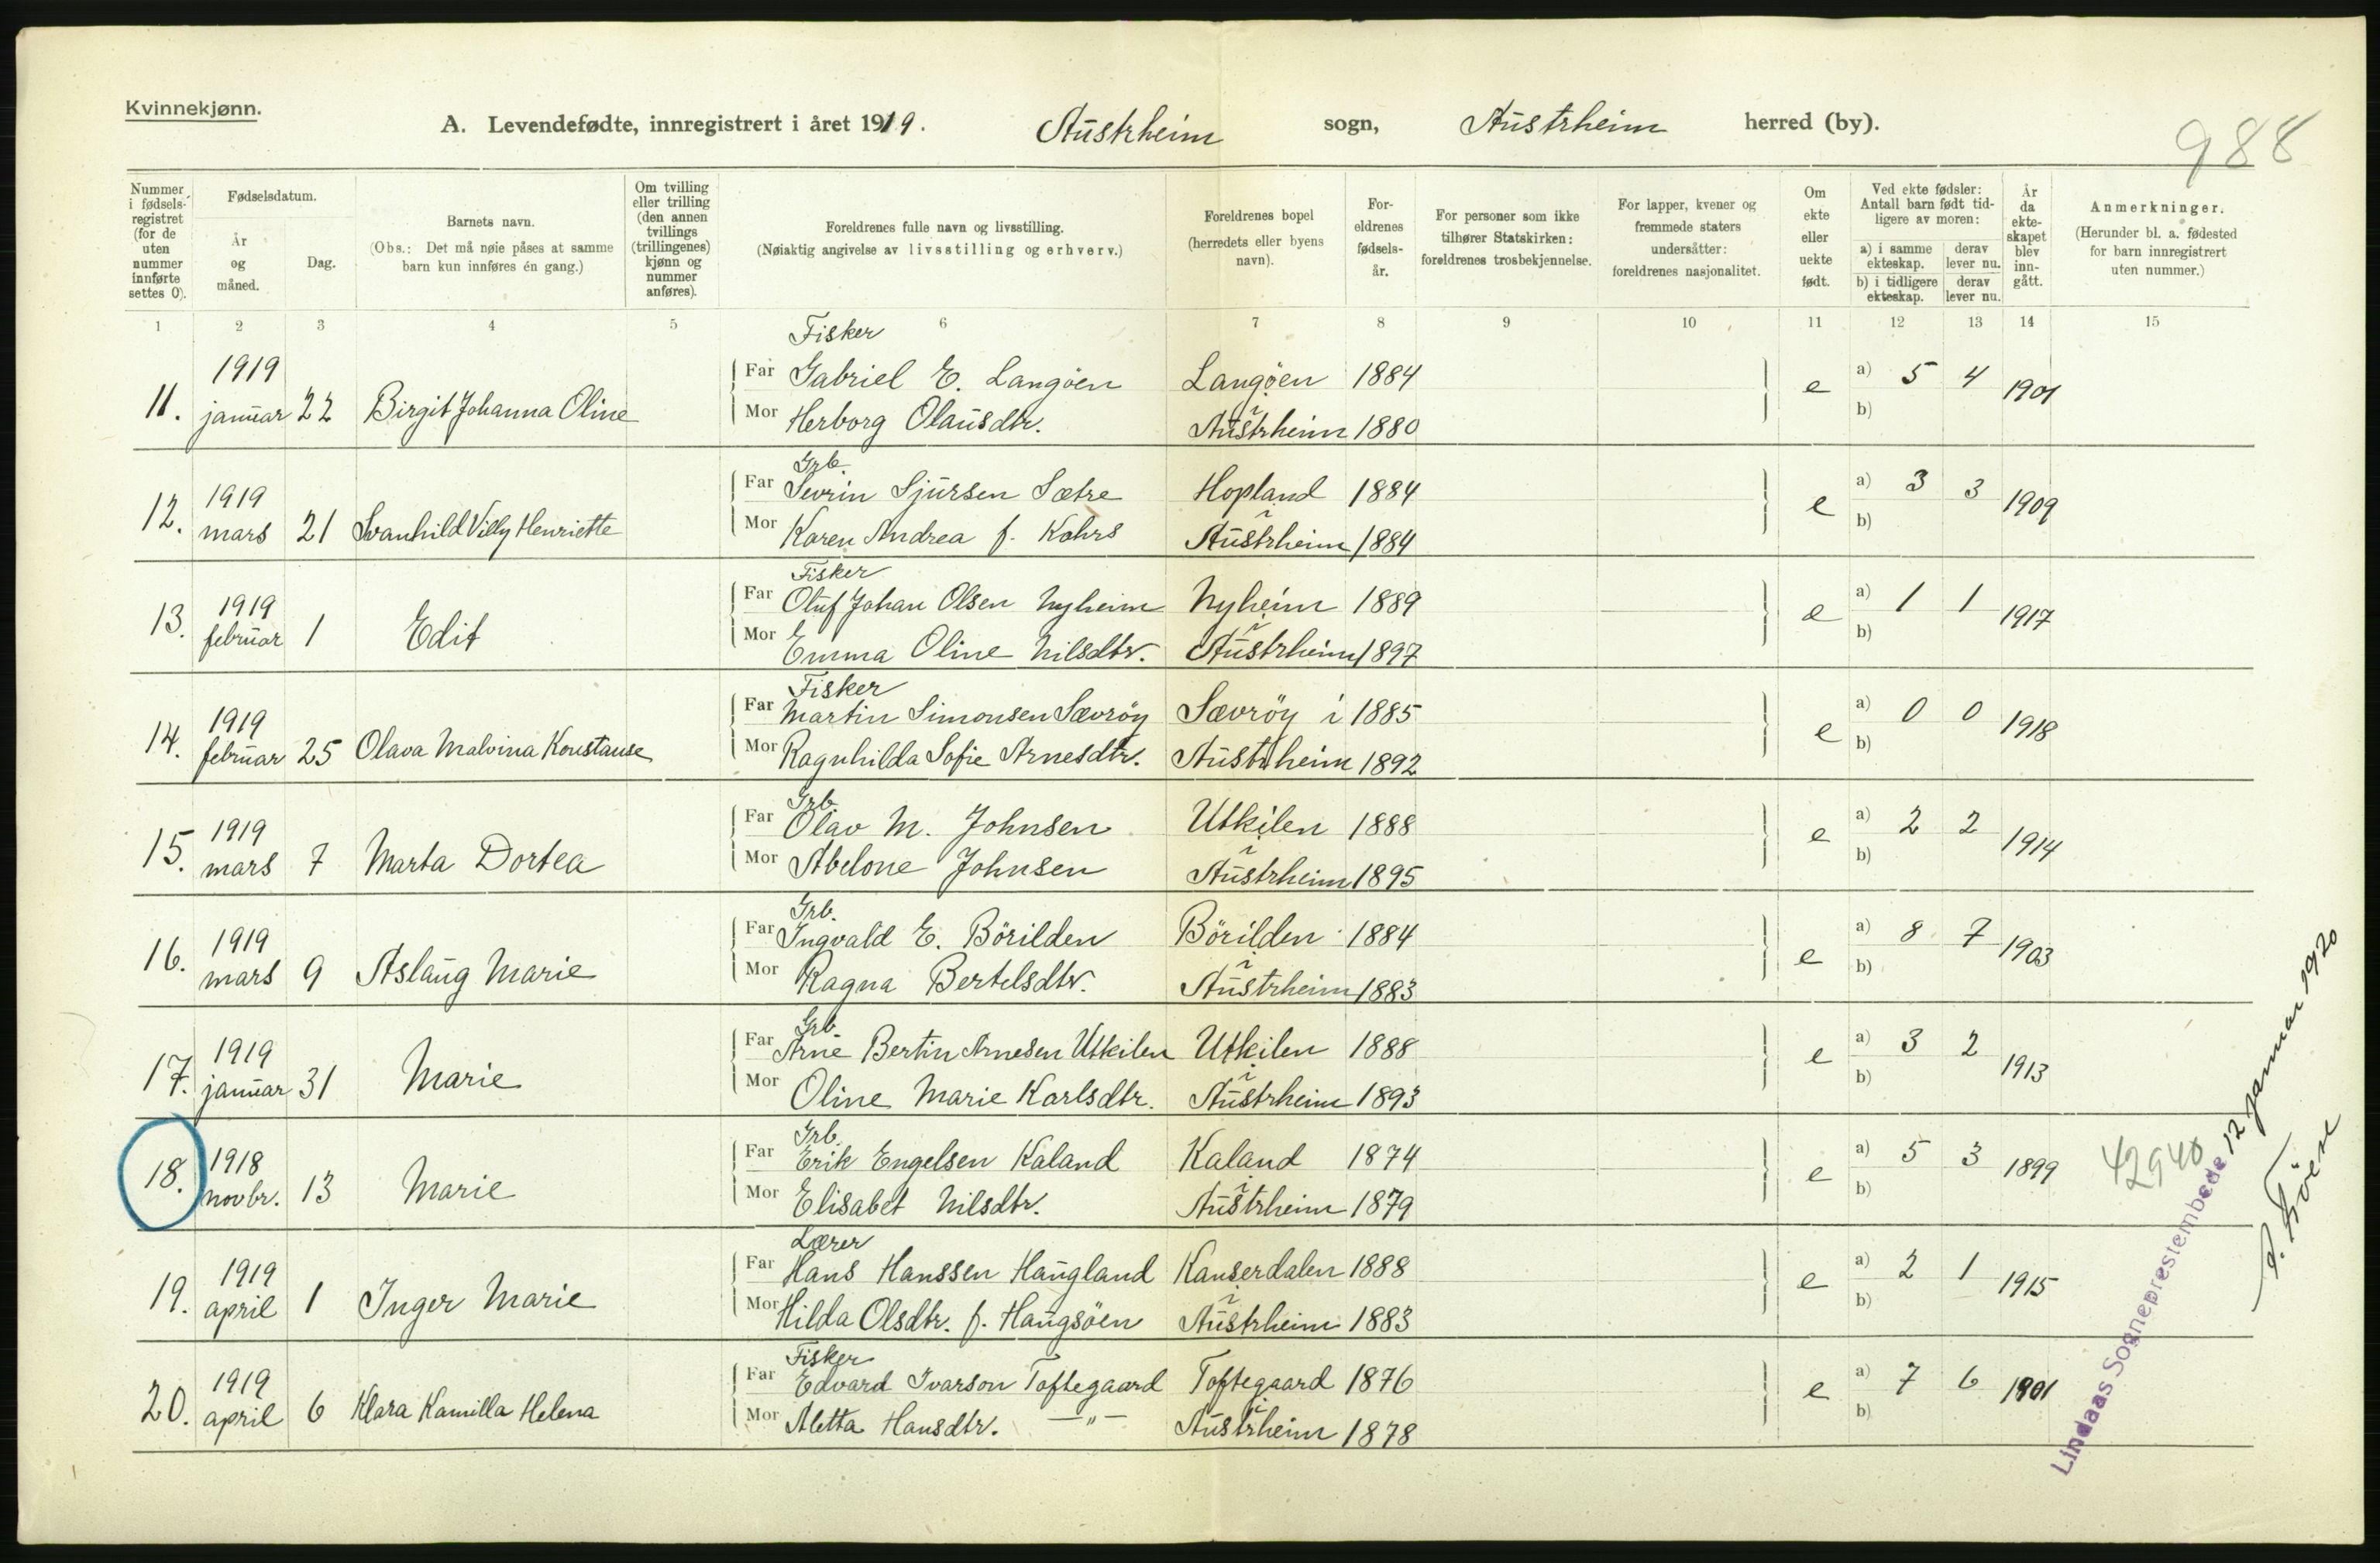 Kvinnekjønn.
A. Levendefødte, innregistrert i året 1919. Austrheim sogn, Austrheim herred (by).
988
Nummer i fødsels-registret (for de uten nummer innførte settes 0).
Fødselsdatum.
År og måned.
Dag.
Barnets navn.
(Obs.: Det må nøie påses at samme barn kun innføres én gang.)
Om tvilling eller trilling (den annen tvillings (trillingenes) kjønn og nummer anføres).
Foreldrenes fulle navn og livsstilling.
(Nøiaktig angivelse av livsstilling og erhverv.)
Foreldrenes bopel (herredets eller byens navn).
For-eldrenes fødsels-år.
For personer som ikke tilhører Statskirken: foreldrenes trosbekjennelse.
For lapper, kvener og fremmede staters undersåtter: foreldrenes nasjonalitet.
Om ekte eller uekte født.
Ved ekte fødsler: Antall barn født tid-ligere av moren:
a) i samme ekteskap. derav lever nu.
b) i tidligere ekteskap. derav lever nu.
År da ekte-skapet blev inn-gått.
Anmerkninger.
(Herunder bl. a. fødested for barn innregistrert uten nummer.)
1 2 3 4 5 6 7 8 9 10 11 12 13 14 15
Fisker
1919 Far Gabriel E. Langöen Langöen 1884 a) 5 4
11. januar 22 Birgit Johanna Oline e 1901
Mor Herborg Olausdtr. i Austrheim 1880 b)
Grb.
1919 Far Sevrin Sjursen Sætre Hopland 1884 a) 3 3
12. mars 21 Svanhild Villy Henriette e 1909
Mor Karen Andrea f. Kohrs i Austrheim 1884 b)
Fisker
1919 Far Oluf Johan Olsen Nyheim Nyheim 1889 a) 1 1
13. februar 1 Edit e 1917
Mor Emma Oline Nilsdtr. i Austrheim 1897 b)
Fisker
1919 Far Martin Simonsen Sævröy Sævröy i 1885 a) 0 0
14. februar 25 Olava Malvina Konstanse e 1918
Mor Ragnhilda Sofie Arnesdtr. Austrheim 1892 b)
Grb.
1919 Far Olav M. Johnsen Utkilen 1888 a) 2 2
15. mars 7 Marta Dortea e 1914
Mor Abelone Johnsen i Austrheim 1895 b)
Grb.
1919 Far Ingvald E. Börilden Börilden 1884 a) 8 7
16. mars 9 Aslaug Marie e 1903
Mor Ragna Bertelsdtr. i Austrheim 1883 b)
Grb.
1919 Far Arne Bertin Arnesen Utkilen Utkilen 1888 a) 3 2
17. januar 31 Marie e 1913
Mor Oline Marie Karlsdtr. i Austrheim 1893 b)
Grb.
1918 Far Erik Engelsen Kaland Kaland 1874 a) 5 3
18. novbr. 13 Marie e 1899
Mor Elisabet Nilsdtr. i Austrheim 1879 b)
42940
Lærer
1919 Far Hans Hanssen Haugland Kanserdalen 1888 a) 2 1
19. april 1 Inger Marie e 1915
Mor Hilda Olsdtr. f. Haugsöen i Austrheim 1883 b)
Fisker
1919 Far Edvard Ivarson Toftegaard Toftegaard 1876 a) 7 6
20. april 6 Klara Kamilla Helena e 1901
Mor Aletta Hansdtr. —"— i Austrheim 1878 b)
Lindaas Sogneprestembede 12 januar 1920